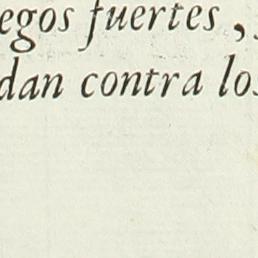 egos fuertes,
dan contra los